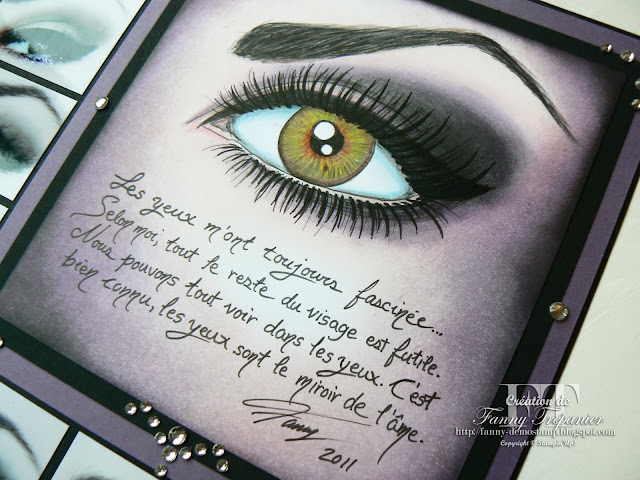 Les yeux m'ont toujours fascinée...
Selon moi, tout le reste du visage est futile.
Nous pouvons tout voir dans les yeux. C'est
bien connu, les yeux sont le miroir de l'âme.
Fanny
2011
FT
Création de
Fanny Trépanier
http://fanny-demostamp.blogspot.com
Copyright © Stampin' Up!